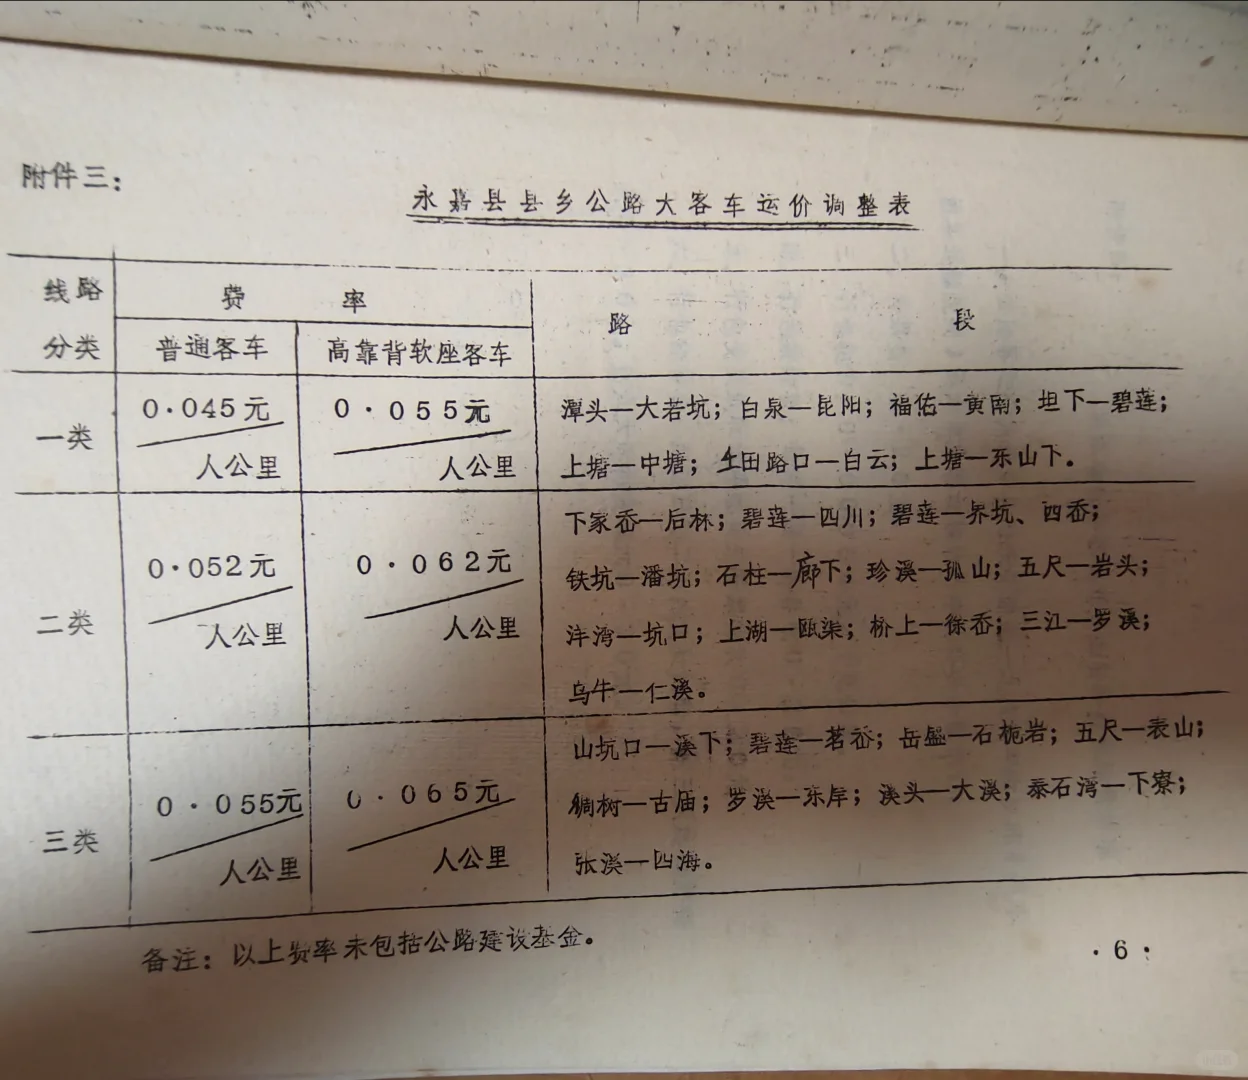 附件三：
永嘉县县乡公路大客车运价调整表
线路分类
费率
路段
普通客车
高靠背软座客车
一类
0·045元/人公里
0·055元/人公里
潭头—大若坑；白泉—昆阳；福佑—黄南；坦下—碧莲；
上塘—中塘；土田路口—白云；上塘—东山下。
二类
0·052元/人公里
0·062元/人公里
下家岙—后林；碧莲—四川；碧莲—界坑、西岙；
铁坑—潘坑；石柱—廊下；珍溪—孤山；五尺—岩头；
沣湾—坑口；上湖—瓯渠；桥上—徐岙；三江—罗溪；
乌牛—仁溪。
三类
0·055元/人公里
0·065元/人公里
山坑口—溪下；碧莲—茗岙；岳盛—石桅岩；五尺—表山；
树—古庙；罗溪—东岸；溪头—大溪；泰石湾—下寮；
张溪—四海。
备注：以上费率未包括公路建设基金。
·6·